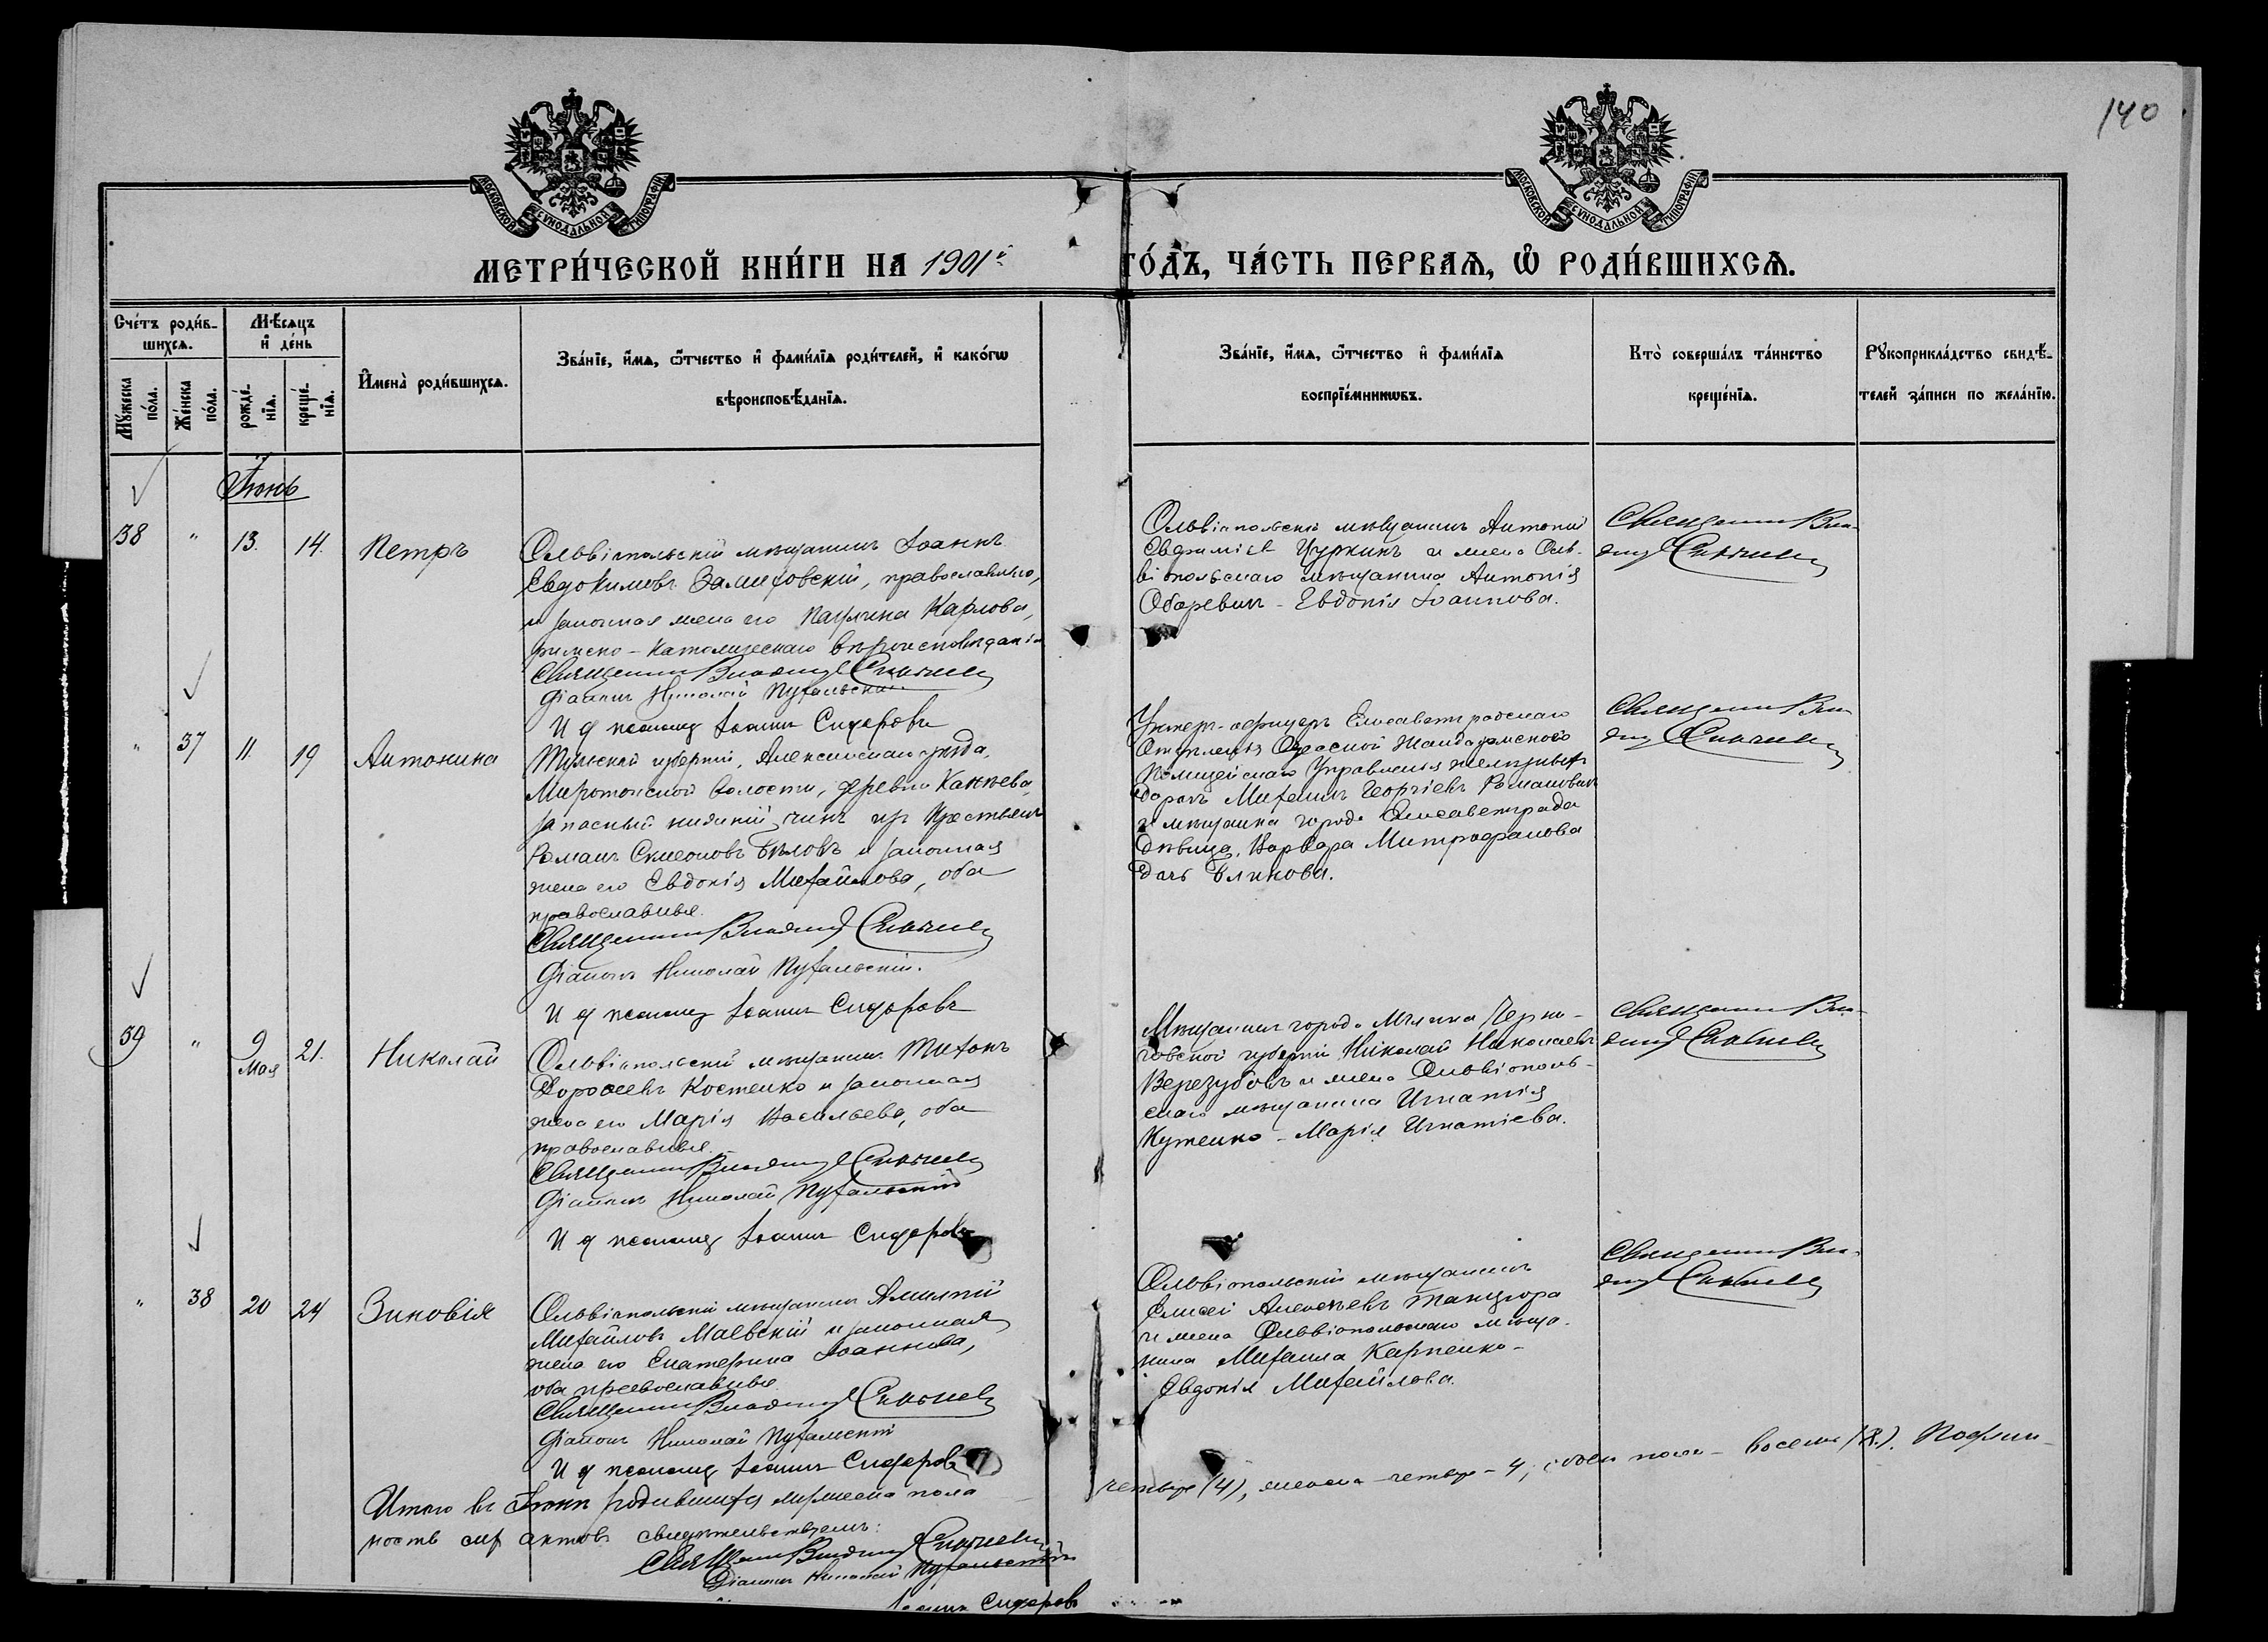 140
МОСКОВСКОЙ СУНОДАЛЬНОЙ ТИПОГРАФІИ
МОСКОВСКОЙ СУНОДАЛЬНОЙ ТИПОГРАФІИ
МЕТРИ́ЧЕСКОЙ КНИ́ГИ НА 1901й
ГО́ДЪ, ЧА́СТЬ ПЕРВАѦ, Ѡ РОДИ́ВШИХСѦ.
Сче́тъ роди́в-
шихсѧ.
Мѣ́сѧцъ
и҆ де́нь
Мꙋ́жеска
по́ла.
Же́нска
по́ла.
рожде́-
нїѧ.
креще́-
нїѧ.
И҆мена̀ роди́вшихсѧ.
Зва́нїе, и҆́мѧ, ѻ҆́тчество и҆ фами́лїѧ роди́телей, и҆ како́гѡ
вѣроисповѣ́данїѧ.
Зва́нїе, и҆́мѧ, ѻ҆́тчество и҆ фами́лїѧ
воспрїе́мникѡвъ.
Кто̀ соверша́лъ та́инство
креще́нїѧ.
Рꙋкоприкла́дство свидѣ́-
телей за́писи по жела́нїю.
Іюнь
38 " 13. 14. Петръ
Ольвіопольскій мѣщанинъ Іоаннъ
Евдокимовъ, православнаго,
и законная жена его Карлова,
римско-католическаго вѣроисповѣданія
Священникъ Владимір
Діаконъ Николай
И д псаломщ Іоаннъ Сидоровъ
Ольвіопольскій мѣщанинъ Антоній
Евфиміевъ Цуркинъ и жена Оль-
віопольскаго мѣщанина Антонія
- Евдокія Іоаннова.
Священникъ Вла-
димір
" 37 11. 19 Антонина
Тульской губерніи, Алексинскаго уѣзда,
волости, деревни
запасный нижній чинъ изъ крестьянъ
Романъ Симеоновъ Бѣловъ и законная
жена его Евдокія Михайлова, оба
православные.
Священникъ Владимір
Діаконъ Николай
И д псаломщ Іоаннъ Сидоровъ
Унтеръ-офицеръ Елисаветградскаго
Отдѣленія Одесской Жандармскаго
Полицейскаго Управленія желѣзныхъ
дорогъ Михаилъ Георгіевъ Романовичъ
и мѣщанка города Елисаветграда
дѣвица, Варвара Митрофанова
дочь Блинова.
Священникъ Вла-
димір
39 " 9 Мая 21. Николай
Ольвіопольскій мѣщанинъ Тихонъ
Дороѳеевъ Костенко и законная
жена его Марія Васильева, оба
православные.
Священникъ Владимір
Діаконъ Николай
И д псаломщ Іоаннъ Сидоровъ
Мѣщанинъ города Мглина Черни-
говской губерніи Николай Николаевъ
Верезубовъ и жена Ольвіополь-
скаго мѣщанина Игнатія
Куженко - Марія Игнатіева.
Священникъ Вла-
димір
" 38 20 24 Зиновія
Ольвіопольскій мѣщанинъ
Михайловъ Маевскій и законная
жена его Екатерина Іоаннова,
оба православные.
Священникъ Владимір
Діаконъ Николай
И д псаломщ Іоаннъ Сидоровъ
Ольвіопольскій мѣщанинъ
Елисей Алексѣевъ Танцюра
и жена Ольвіопольскаго мѣща-
нина Михаила Карпенко -
Евдокія Михайлова.
Священникъ Вла-
димір
Итого въ Іюнѣ родившихся мужеска пола
четыре (4), женска - четыре - 4; обоего пола - восемь (8.). Подлин-
ность сихъ актовъ свидѣтельствуемъ:
Священникъ Владимір
Діаконъ Николай
Іоаннъ Сидоровъ